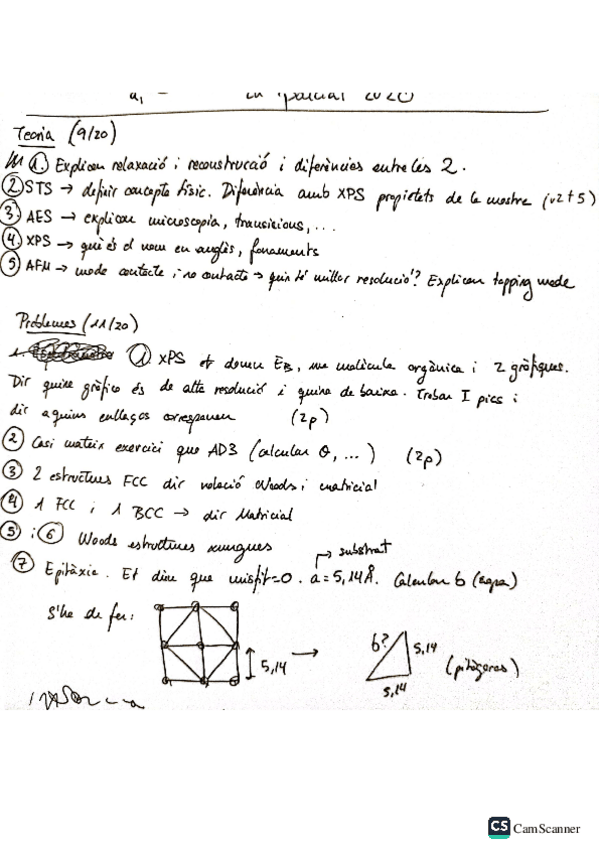 parcial 2020
Teoria (9/20)
1. Explicar relaxació i reconstrucció i diferències entre les 2.
2 STS → definir concepte físic. Diferència amb XPS propietats de la mostra (v2+5)
3. AES → explicar microscopia, transicions, ...
4. XPS → què és el nom en anglès, fonaments
5 AFM → mode contacte i no contacte → quin té millor resolució? Explicar tapping mode
Problemes (11/20)
1. 1 XPS et donen EB, una molècula orgànica i 2 gràfiques.
Dir quina gràfica és de alta resolució i quina de baixa. Trobar I pics i
dir a quins enllaços corresponen (2p)
2 Casi mateix exercici que AD3 (calcular θ, ...) (2p)
3 2 estructures FCC dir relació Woods i matricial
4 1 FCC i 1 BCC → dir Matricial
5 i 6 Woods estructures xungues
→ substrat
7 Epitàxia. Et diu que misfit=0. a = 5,14Å. Calcular b (capa)
S'ha de fer:
5,14
→
b?
5,14
5,14
(pitàgores)
CS CamScanner